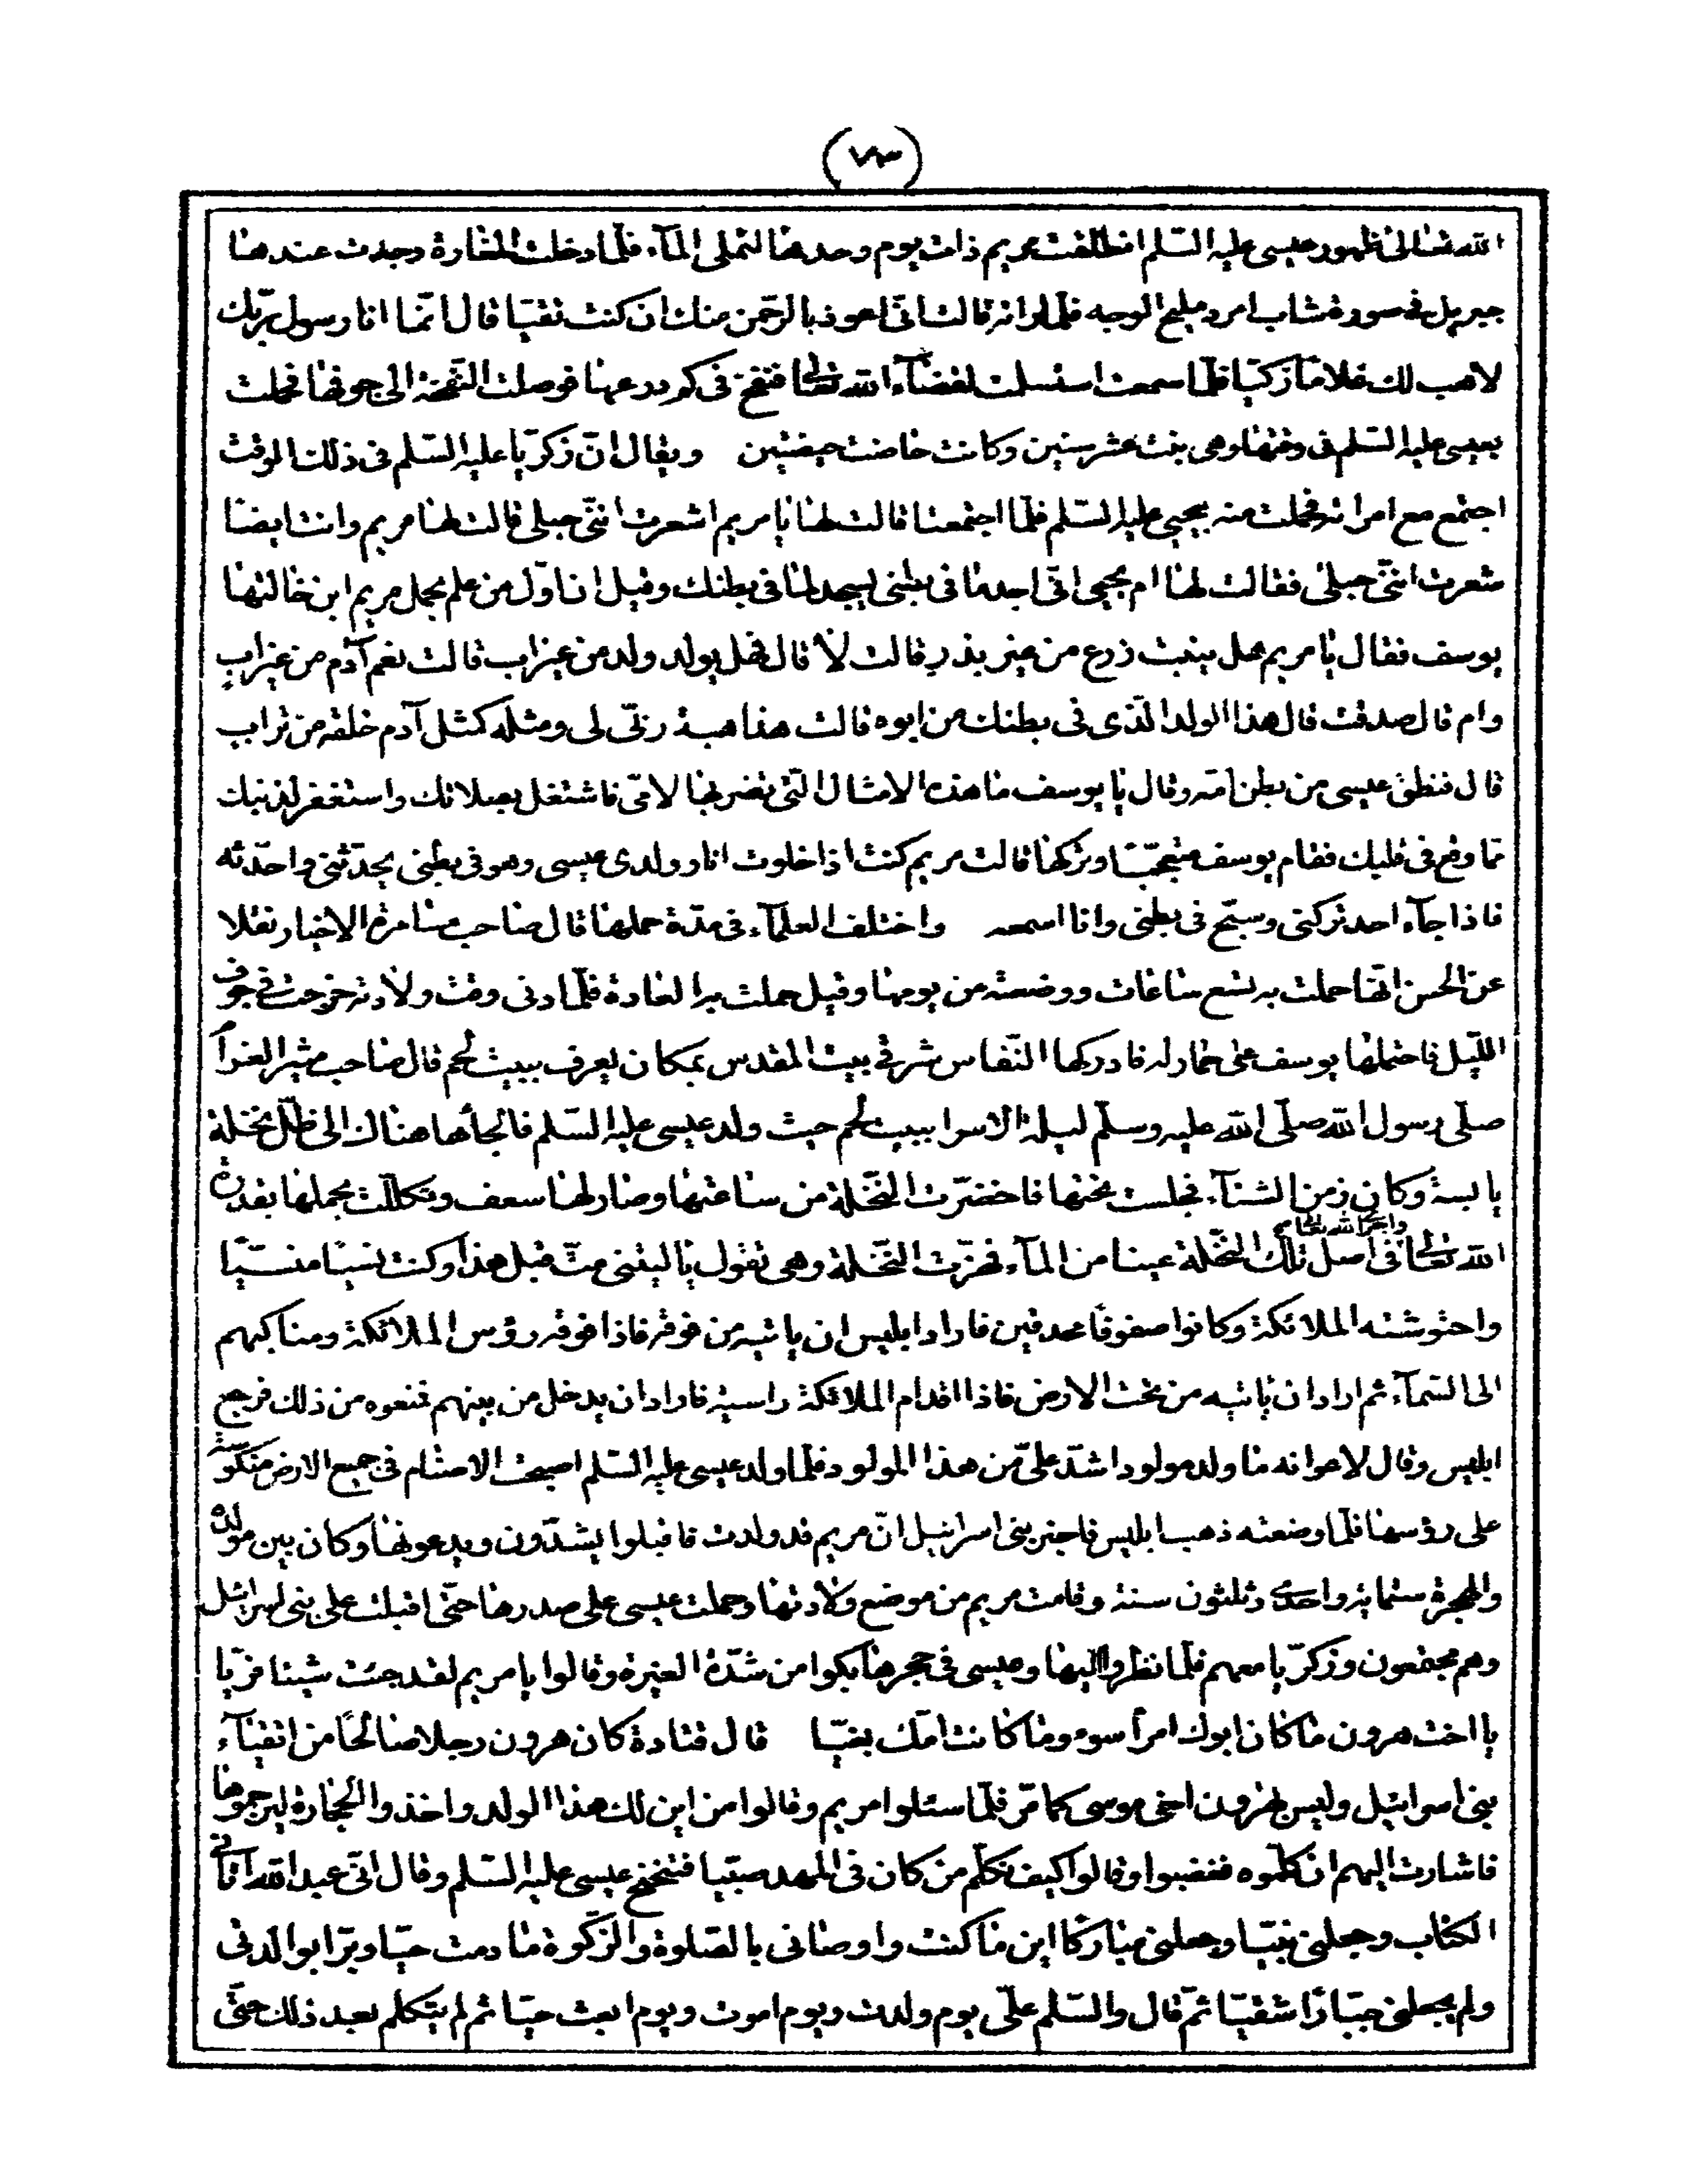 (٧٣)
الله تعالى ظهور عيسى عليه السّلم انطلقت مريم ذات يوم وحدها لتملى المآء فلمّا دخلت المغارة وجدت عندها
جبريل فى صورة شاب امرد مليح الوجه فلمّا راته قالت انّى اعوذ بالرّحمن منك ان كنت تقيّا قال انّما انا رسول ربّك
لاهب لك غلامًا زكيّا فلمّا سمعت استسلمت لقضآء الله تعالى فنفخ فى كم درعها فوصلت النّفخة الى جوفها فحملت
بعيسى عليه السّلم فى وقتها وهى بنت عشر سنين وكانت حاضت حيضتين ويقال انّ زكريّا عليه السّلم فى ذلك الوقت
اجتمع مع امراته فحملت منه بيحيى عليه السّلم فلمّا اجتمعتا قالت لها يا مريم اشعرت انّنى حبلى قالت لها مريم وانت ايضا
شعرت انّنى حبلى فقالت لها ام يحيى انّى اجد ما فى بطنى ليسجد لما فى بطنك وقيل ان اوّل من علم بحمل مريم ابن خالتها
يوسف فقال يا مريم هل ينبت زرع من غير بذر قالت لا قال فهل يولد ولد من غير اب قالت نعم آدم من غير ابٍ
وام قال صدقت قال هذا الولد الّذى فى بطنك من ابوه قالت هذا هبة ربّى لى ومثله كمثل آدم خلقه من تراب
قال فنطق عيسى من بطن امّه وقال يا يوسف ما هذه الامثال الّتى تضربها لامّى فاشتغل بصلاتك واستغفر لذنبك
ممّا وقع فى قلبك فقام يوسف متعجّبًا وتركها قالت مريم كنت اذا خلوت انا وولدى عيسى وهو فى بطنى يحدّثنى واحدّثه
فاذا جآء احد تركنى وسبّح فى بطنى وانا اسمعه واختلف العلمآء فى مدّة حملها قال صاحب مسامرة الاخبار نقلا
عن الحسن انّها حملت به تسع ساعات ووضعته من يومها وقيل حملت به العادة فلمّا دنى وقت ولادته خرجت فى جوف
اللّيل فاحتملها يوسف على حمار له فادركها النّفاس شرقى بيت المقدس بمكان يعرف ببيت لحم قال صاحب مثير الغرام
صلّى رسول الله صلّى الله عليه وسلّم ليلة الاسرا ببيت لحم حيث ولد عيسى عليه السّلم فالجأها هناك الى ظلّ نخلة
يابسة وكان زمن الشتآء فجلست تحتها فاخضرّت النّخلة من ساعتها وصار لها سعف وتكلّلت بحملها بقدرة
واجرى الله تعالى
الله تعالى فى اصل تلك النّخلة عينا من المآء فهزّت النّخلة وهى تقول يا ليتنى متّ قبل هذا وكنت نسيًا منسيّا
واحتوشته الملائكة وكانوا صفوفًا محدقين فاراد ابليس ان ياتيه من فوقه فاذا فوقه رؤس الملائكة ومناكبهم
الى السّمآء ثم اراد ان ياتيه من تحت الارض فاذا اقدام الملائكة راسية فاراد ان يدخل من بينهم فمنعوه من ذلك فرجع
ابليس وقال لاعوانه ما ولد مولود اشدّ علىّ من هذا المولود فلمّا ولد عيسى عليه السّلم اصبحت الاصنام فى جميع الارض منكوسة
على رؤسها فلمّا وضعته ذهب ابليس فاخبر بنى اسرائيل انّ مريم قد ولدت فاقبلوا يشتدّون ويدعونها وكان بين مولده
والهجرة ستماية واحدى وثلثون سنة وقامت مريم من موضع ولادتها وحملت عيسى على صدرها حتّى اقبلت على بنى اسرائيل
وهم مجتمعون وزكريّا معهم فلمّا نظروا اليها وعيسى فى حجرها بكوا من شدّة الغيرة وقالوا يا مريم لقد جئت شيئا فريّا
يا اخت هرون ما كان ابوك امرأ سوء وما كانت امّك بغيّا قال قتادة كان هرون رجلا صالحًا من اتقيآء
بنى اسرائيل وليس بهرون اخى موسى كما مّر فلمّا سئلوا مريم وقالوا من اين لك هذا الولد واخذوا الحجارة ليرجموها
فاشارت اليهم ان كلّموه فغضبوا وقالوا كيف نكلّم من كان فى المهد صبيّا فتنحنح عيسى عليه السّلم وقال انّى عبد الله آتانى
الكتاب وجعلنى نبيّا وجعلنى مباركًا اين ما كنت واوصانى بالصّلوة والزّكوة ما دمت حيّا وبرّا بوالدتى
ولم يجعلنى جبّارًا شقيّا ثمّ قال والسّلم علىّ يوم ولدت ويوم اموت ويوم ابعث حيّا ثم لم يتكلّم بعد ذلك حتّى